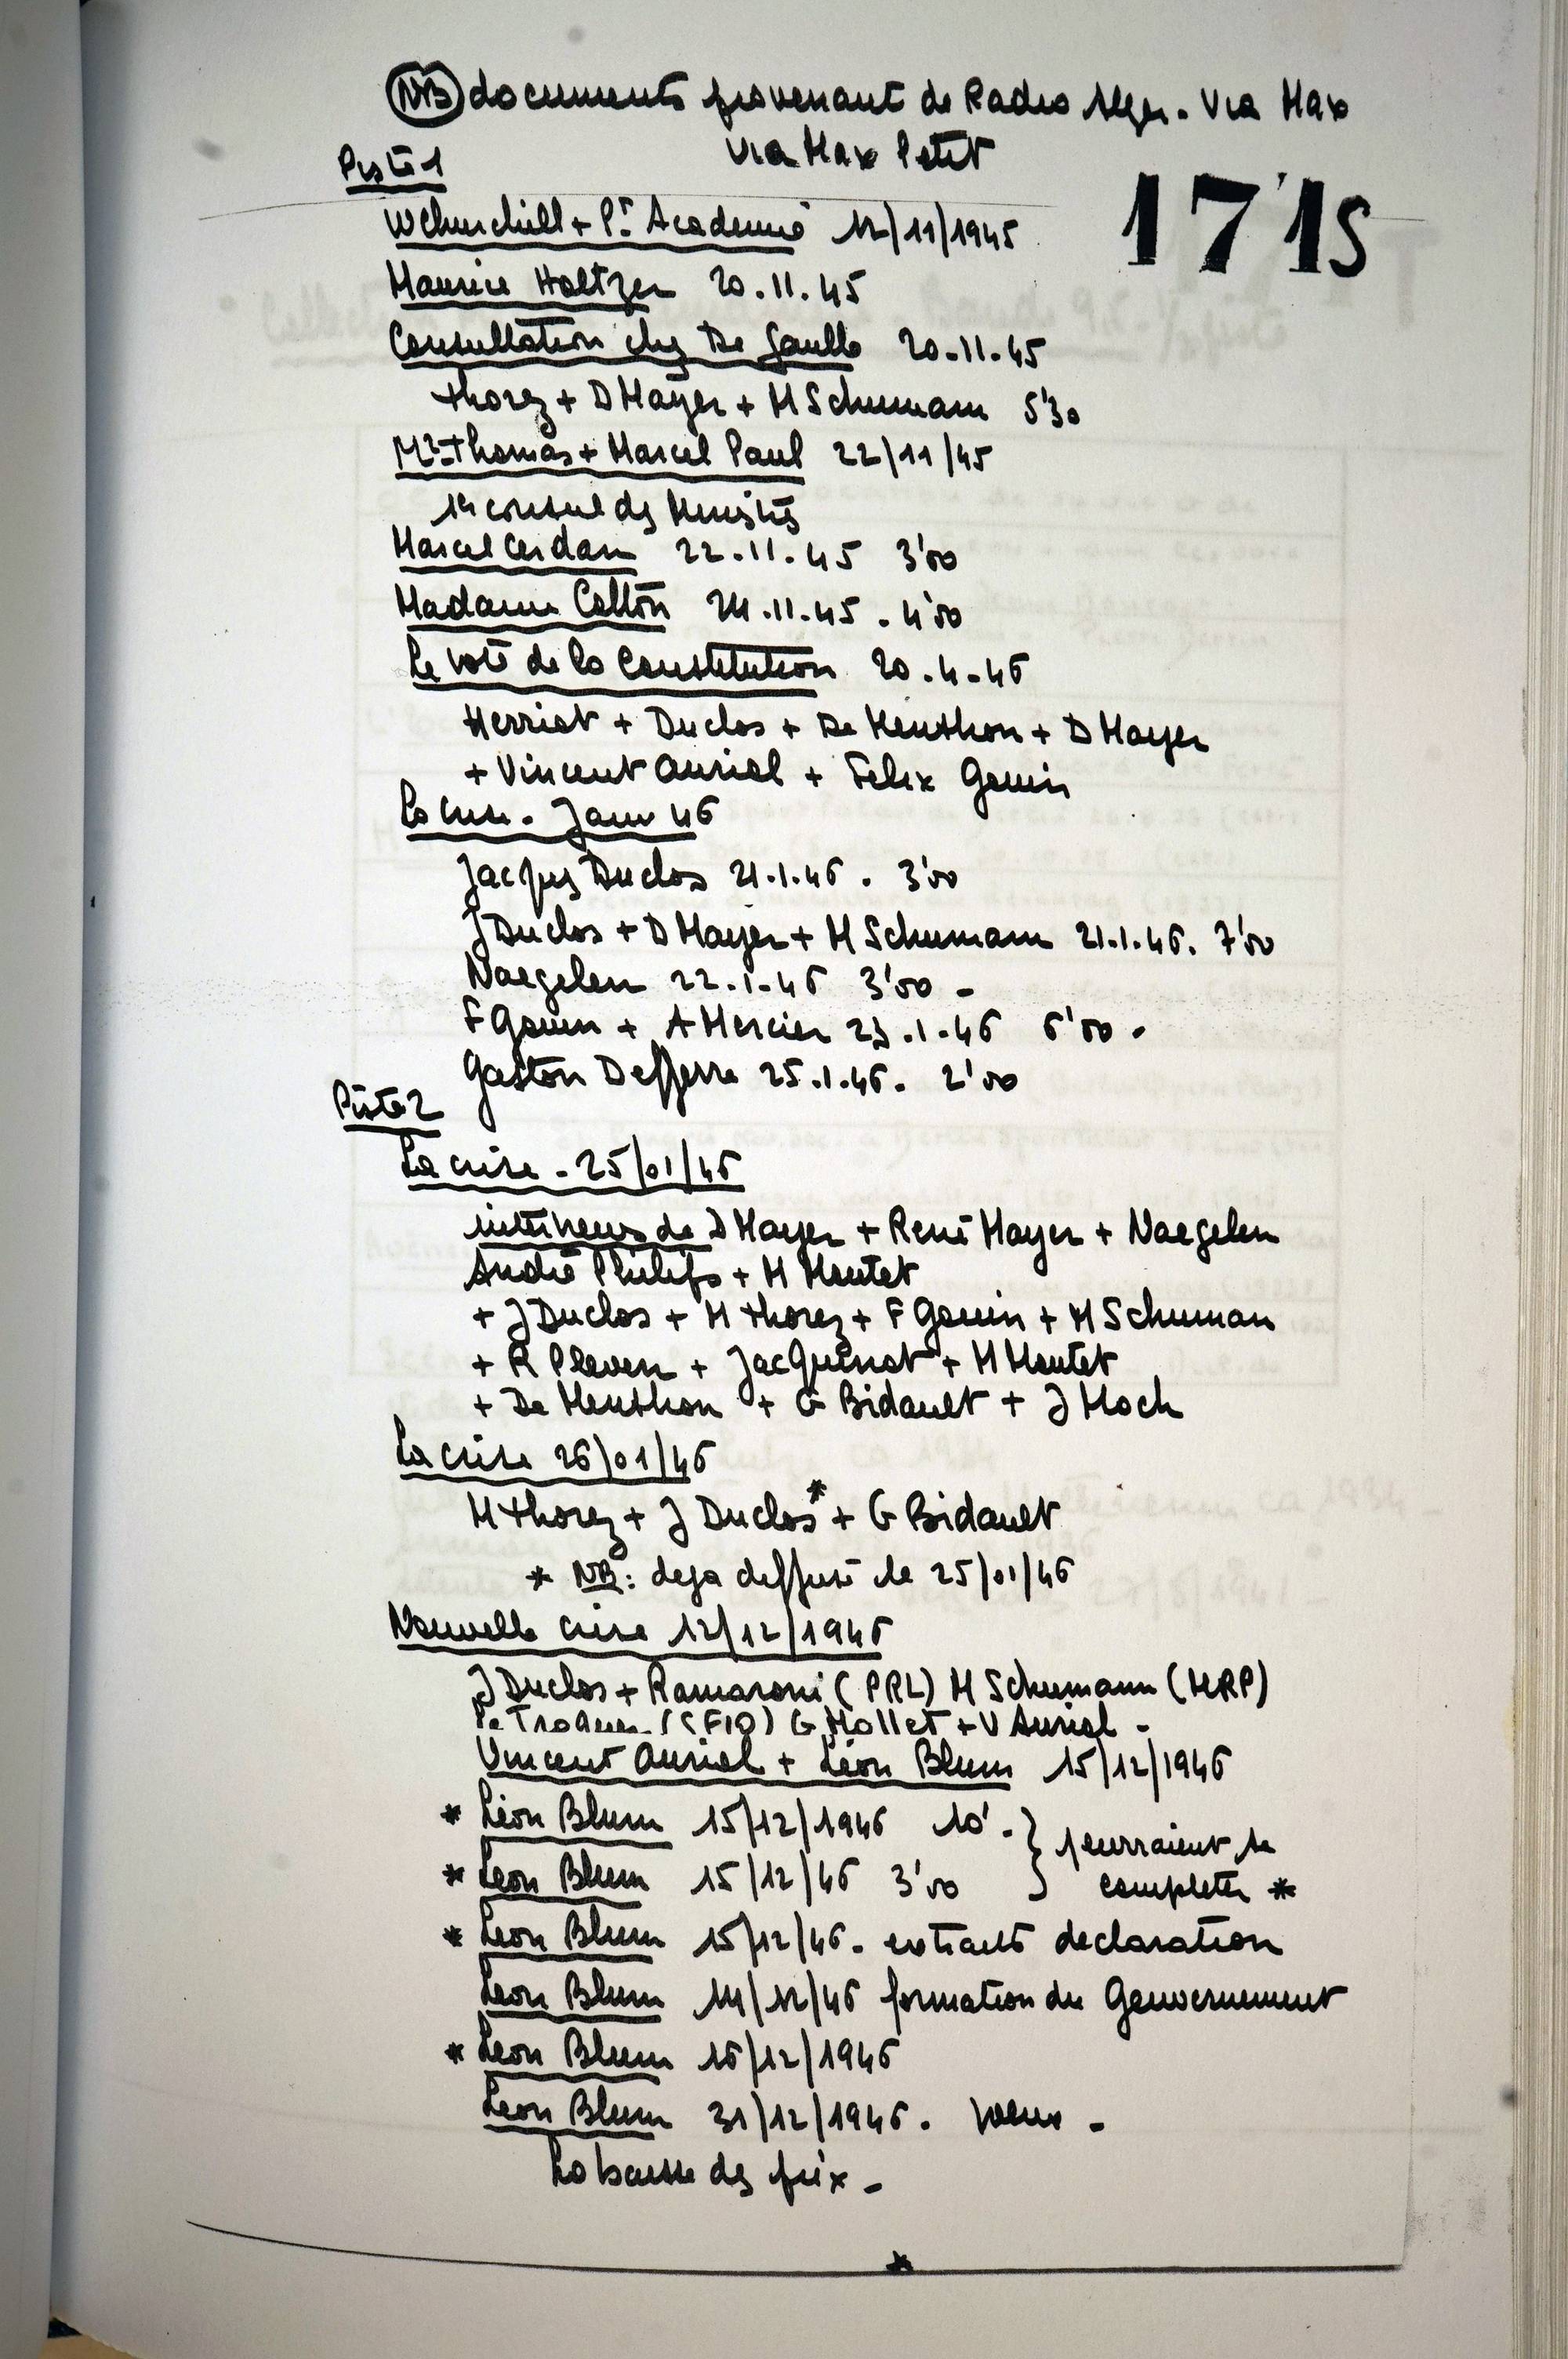 NB documents provenant de Radio Alger. Via Max
Via Max Petit
Piste 1
1715
W Churchill + Pt Academie 12/11/1945
Maurice Holtzer 20.11.45
Consultation chez De Gaulle 20.11.45
Thorez + D Mayer + M Schumann 5'30
Mr Thomas + Marcel Paul 22/11/45
1er conseil des Ministres
Marcel Cerdan 22.11.45 3'00
Madame Cotton 24.11.45. 4'00
Le vote de la Constitution 20.4.46
Herriot + Duclos + De Menthon + D Mayer
+ Vincent Auriol + Felix Gouin
La crise. Janv 46
Jacques Duclos 21.1.46. 3'00
J Duclos + D Mayer + M Schumann 21.1.46. 7'00
Naegelen 22.1.46 3'00 -
F Gouin + A Mercier 23.1.46 6'00.
Gaston Defferre 25.1.46. 2'00
Piste 2
La crise - 25/01/46
interviews de D Mayer + René Mayer + Naegelen
André Philip + M Moutet
+ J Duclos + M Thorez + F Gouin + M Schuman
+ R Pleven + Jacquinot + M Moutet
+ De Menthon + G Bidault + J Moch
La crise 26/01/46
M Thorez + J Duclos* + G Bidault
* NB: deja diffusé le 25/01/46
Nouvelle crise 12/12/1946
J Duclos + Ramaroni (PRL) M Schumann (MRP)
Le Troquer (SFIO) G Mollet + V Auriol -
Vincent Auriol + Léon Blum 15/12/1946
* Léon Blum 15/12/1946 10'. } pourraient se
* Leon Blum 15/12/46 3'00 } completer *
* Leon Blum 15/12/46. extraits declaration
Leon Blum 14/12/46 formation du Gouvernement
* Leon Blum 16/12/1946
Leon Blum 31/12/1946. voeux -
La baisse des prix -
*